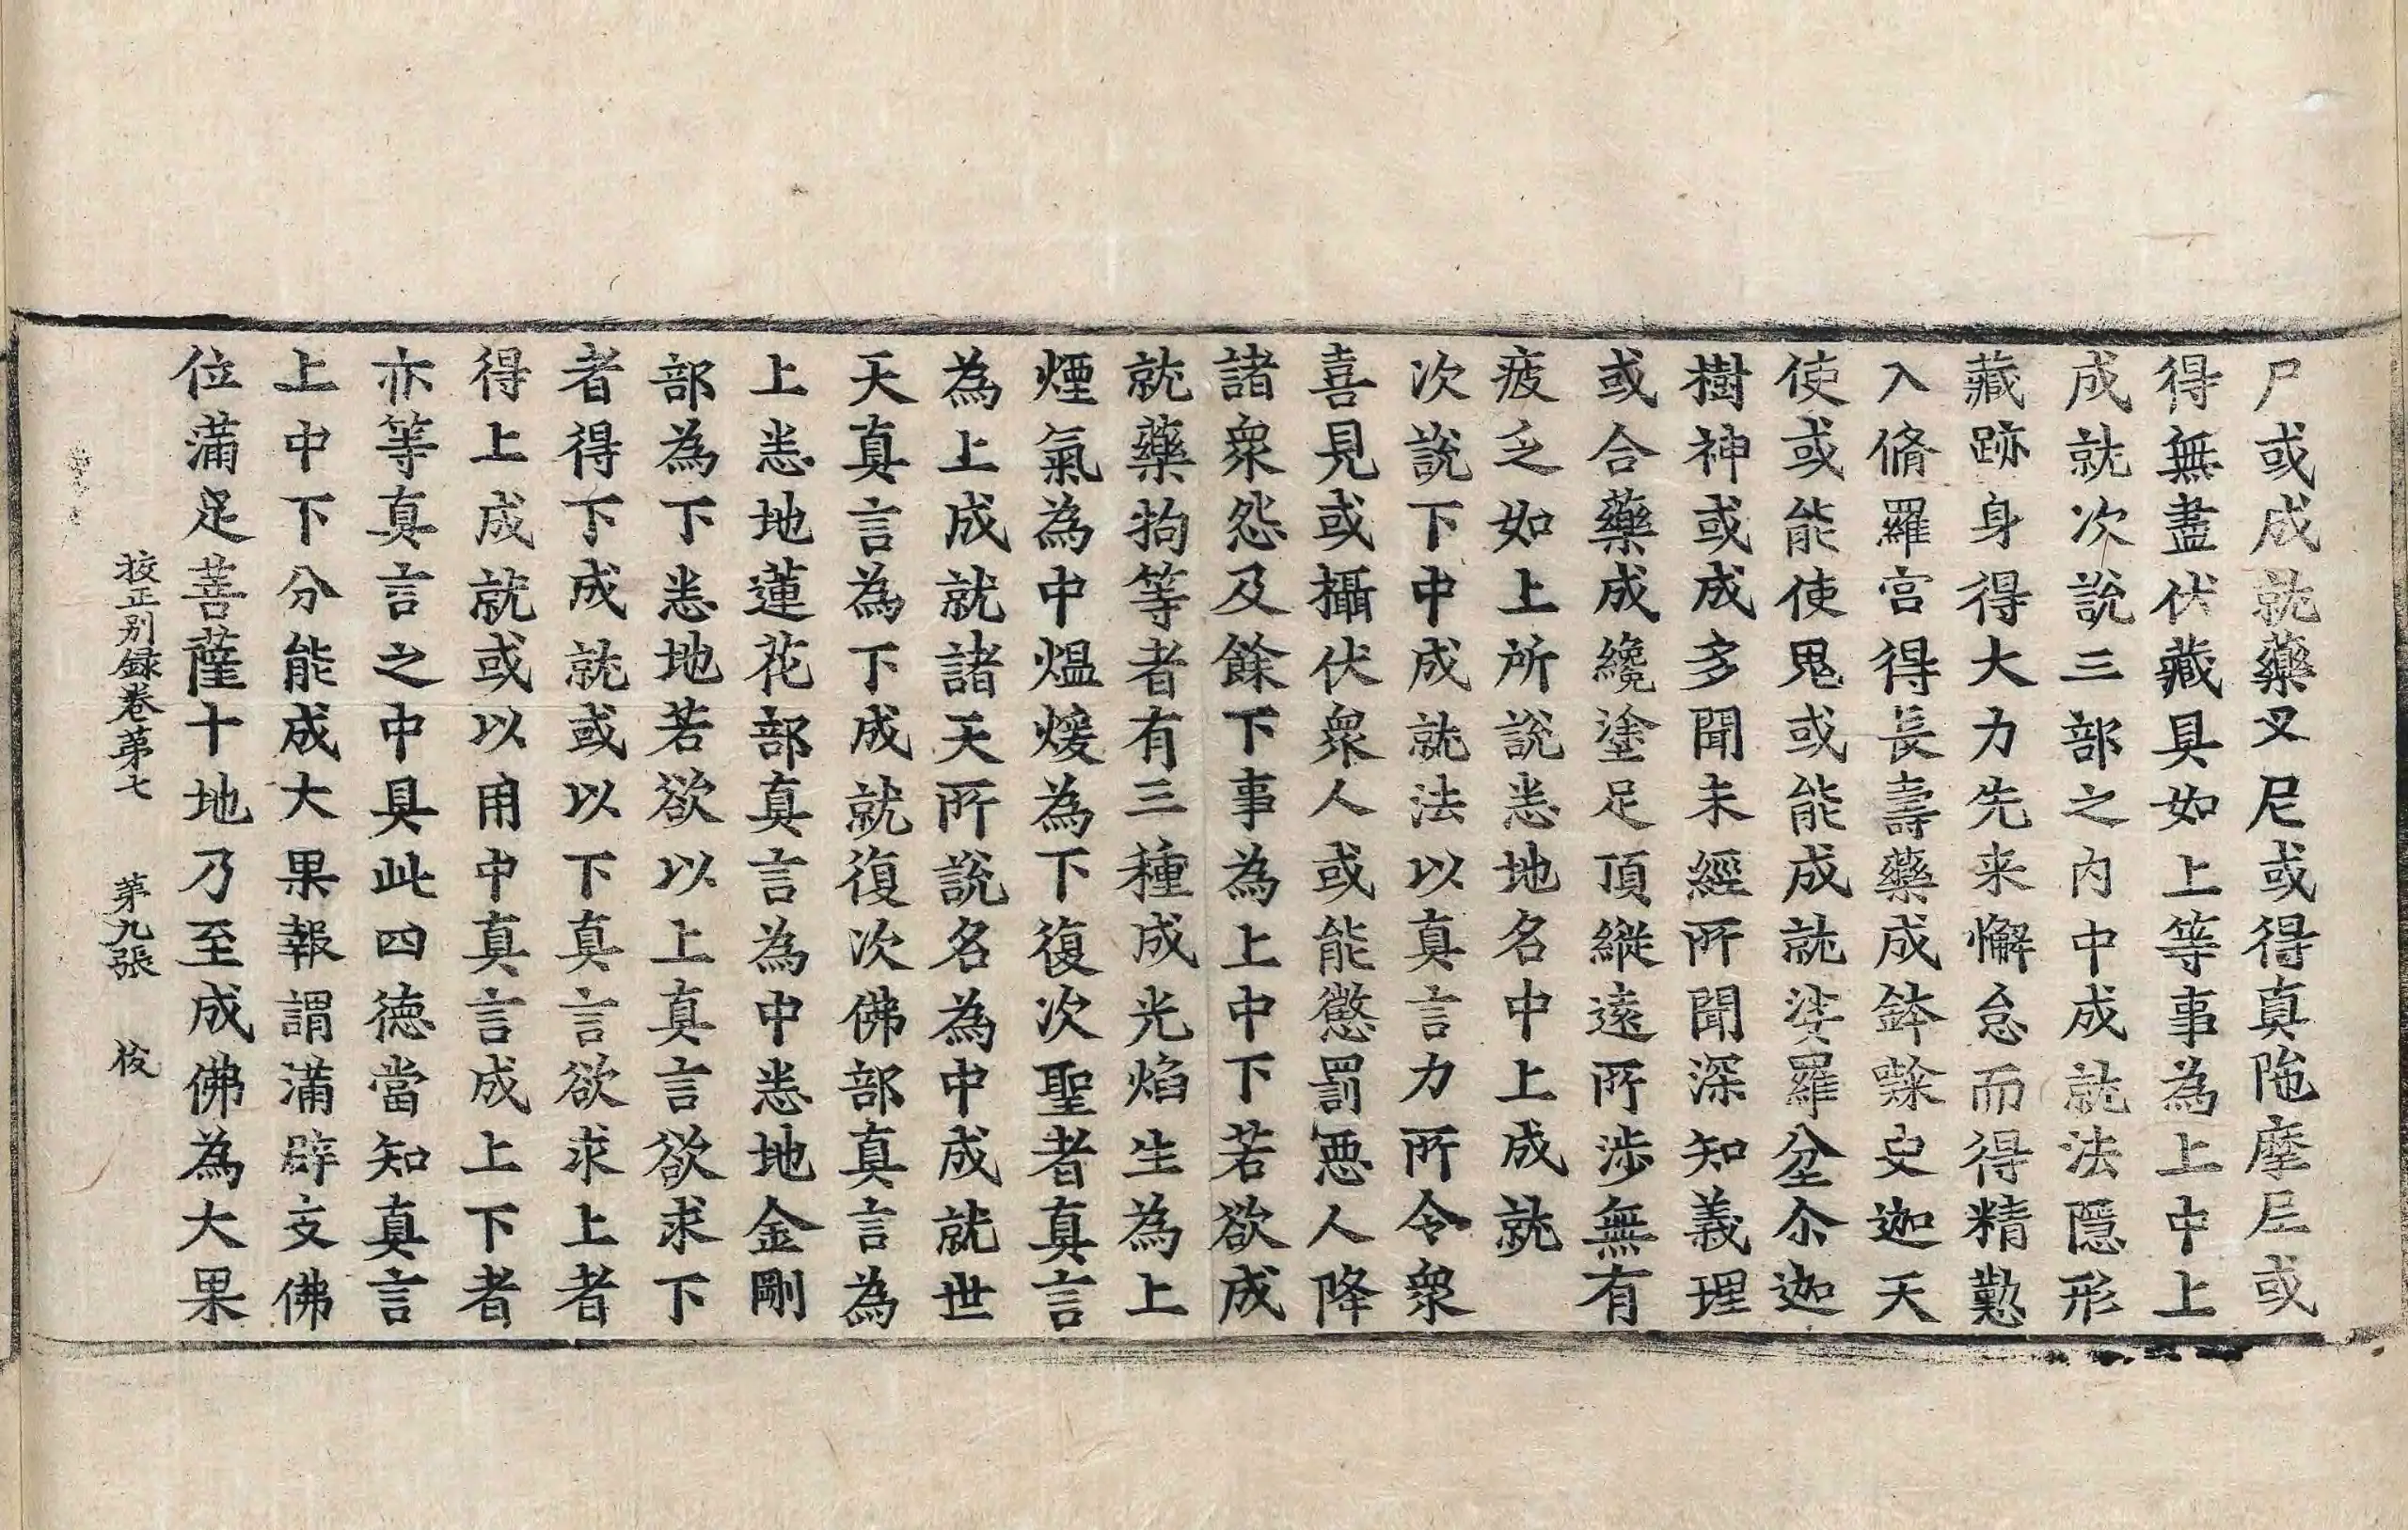 尸或成就藥叉尼或得真陁摩尼或
得無盡伏藏具如上等事為上中上
成就次說三部之內中成就法隱形
藏跡身得大力先来懈怠而得精懃
入脩羅宮得長壽藥成鉢㘑史迦天
使或能使鬼或能成就娑羅坌尒迦
樹神或成多聞未經所聞深知義理
或合藥成纔塗足頂縱遠所涉無有
疲乏如上所說悉地名中上成就
次說下中成就法以真言力所令衆
喜見或攝伏衆人或能懲罰惡人降
諸衆怨及餘下事為上中下若欲成
就藥物等者有三種成光焰生為上
煙氣為中熅煖為下復次聖者真言
為上成就諸天所說名為中成就世
天真言為下成就復次佛部真言為
上悉地蓮花部真言為中悉地金剛
部為下悉地若欲以上真言欲求下
者得下成就或以下真言欲求上者
得上成就或以用中真言成上下者
亦等真言之中具此四德當知真言
上中下分能成大果報謂滿辟支佛
位滿足菩薩十地乃至成佛為大果
挍正別録卷第七 第九張 俊